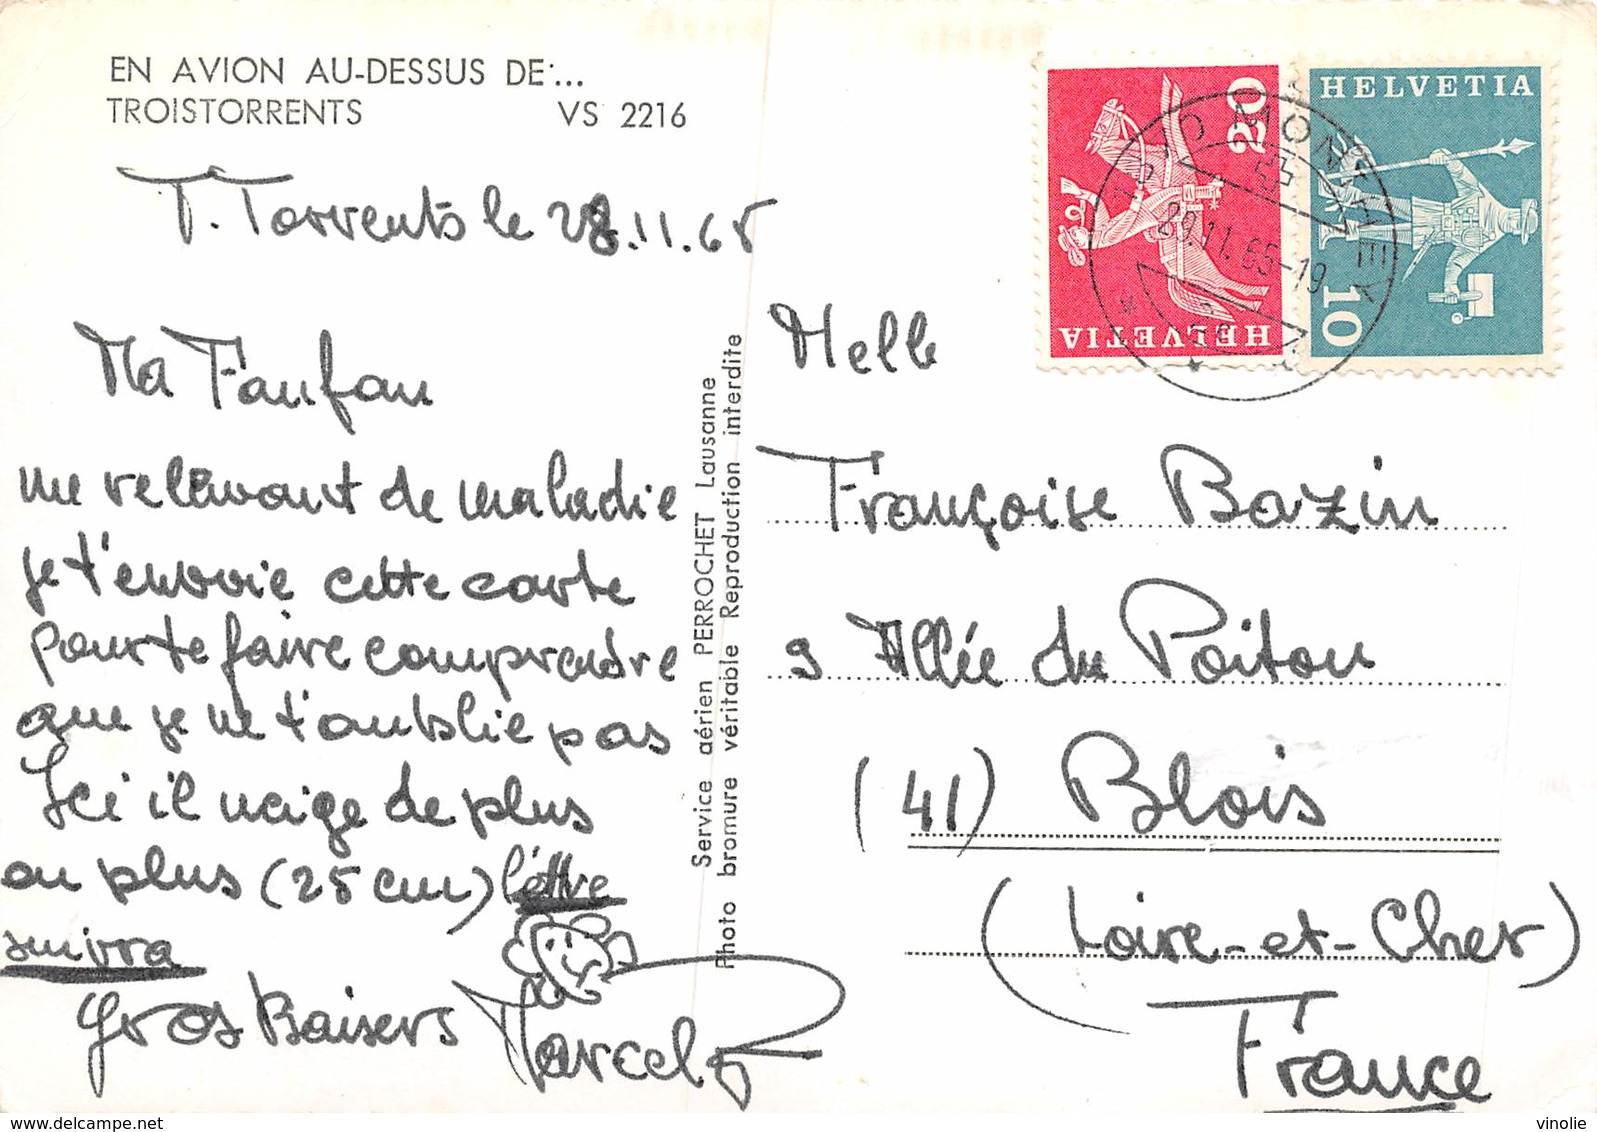 EN AVION AU-DESSUS DE ...
TROISTORRENTS VS 2216
T. Torrents le 28.11.65
Ma Fanfan
me relevant de maladie
je t'envoie cette carte
pour te faire comprendre
que je ne t'oublie pas
Ici il neige de plus
en plus (25 cm) lettre
suivra
Gros Baisers Marcel
Service aérien PERROCHET Lausanne
Photo bromure véritable Reproduction interdite
HELVETIA
20
HELVETIA
10
1870 MONTHEY
29.11.65-19
Melle
Françoise Bazin
9 Allée du Poitou
(41) Blois
(Loire-et-Cher)
France
vinolie